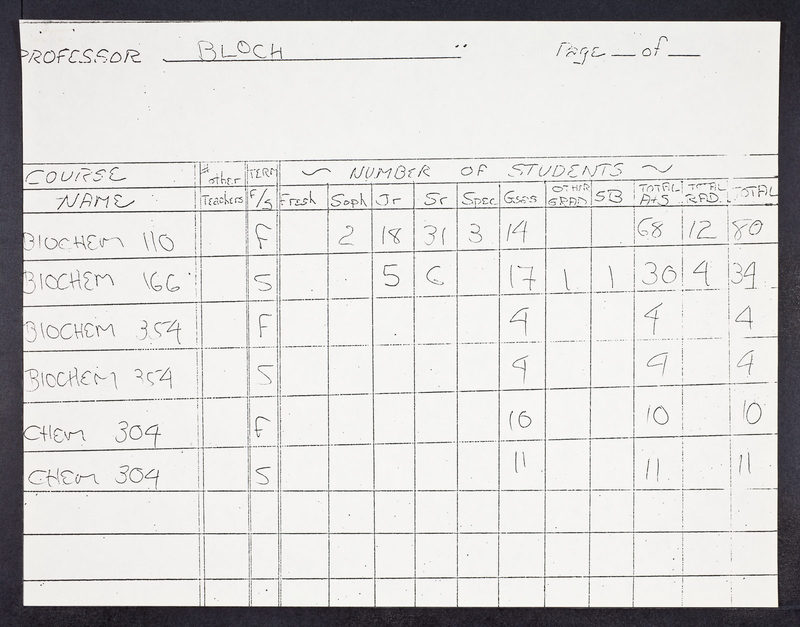 PROFESSOR BLOCH Page __ of __
COURSE # other TERM ~ NUMBER OF STUDENTS ~
NAME Teachers F/S Fresh Soph Jr Sr Spec Gsas OTHER GRAD SB TOTAL A+S TOTAL RAD. TOTAL
BIOCHEM 110 F 2 18 31 3 14 68 12 80
BIOCHEM 166 S 5 6 17 1 1 30 4 34
BIOCHEM 354 F 4 4 4
BIOCHEM 354 S 4 4 4
CHEM 304 F 10 10 10
CHEM 304 S 11 11 11